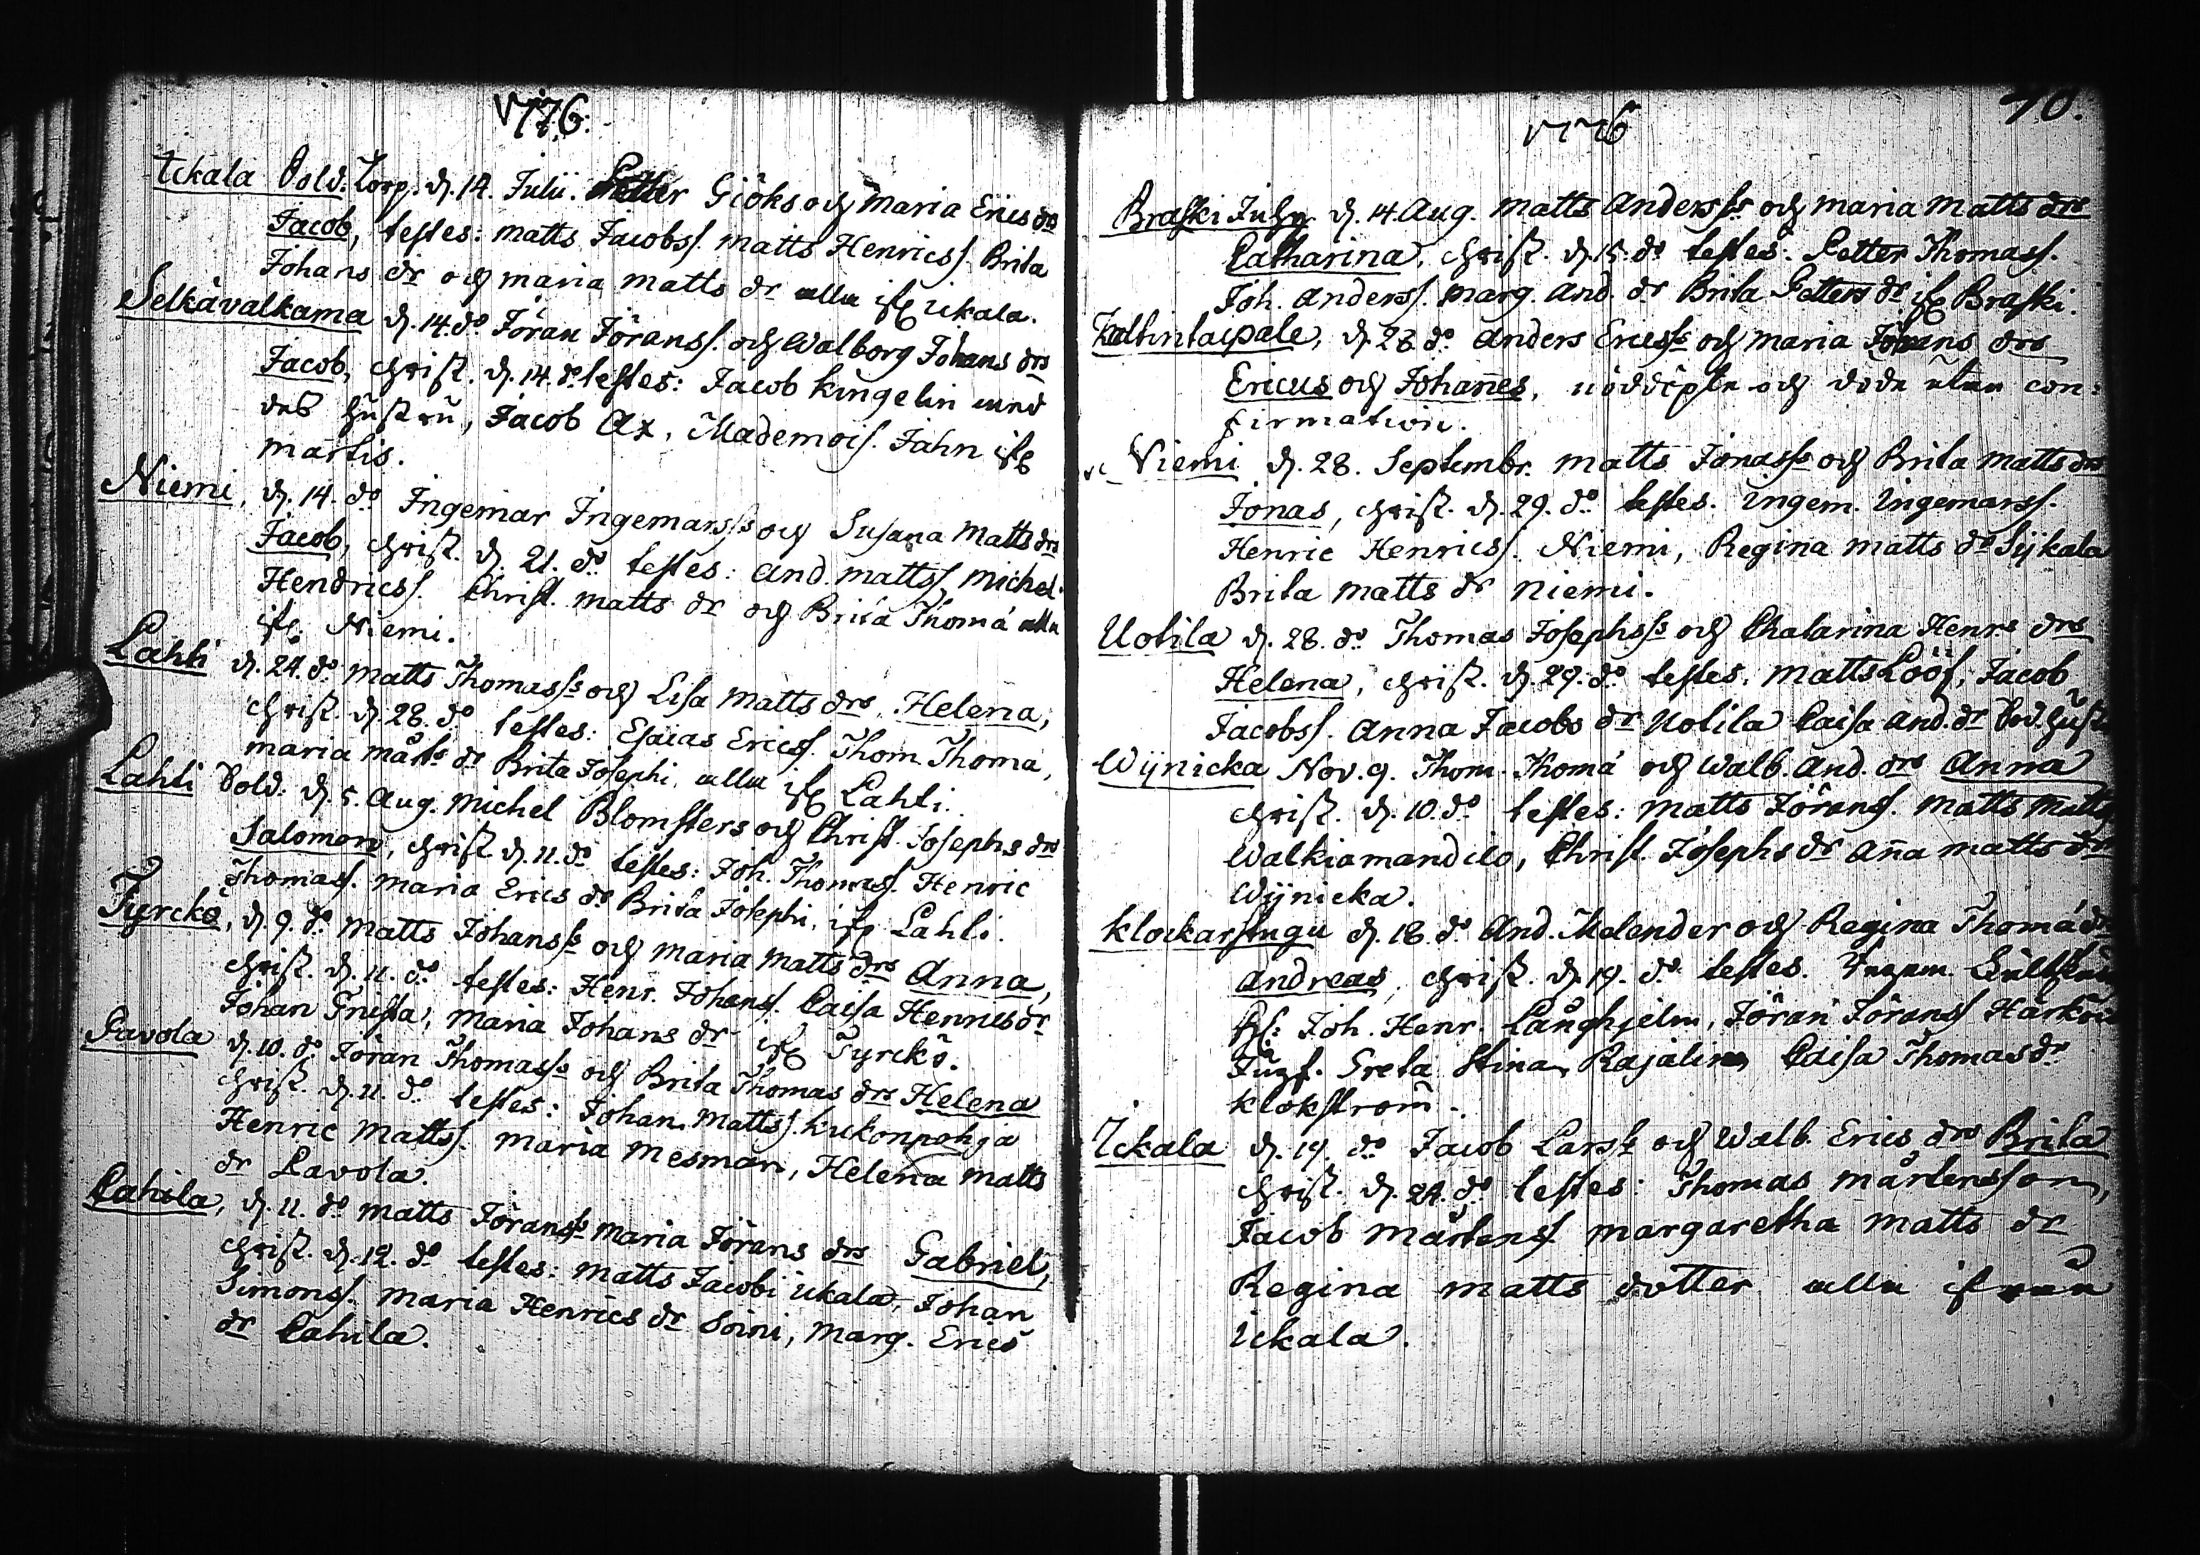 1776.
Ickala Sold. Torp. d. 14. Julii. Petter Giöks och Maria Erics drs
Jacob, testes: Matts Jacobss. Matts Henricss. Brita
Johans dr och Maria Matts dr alla ifr. Ickala.
Selkävalkama d. 14. do Jöran Jöranss. och Walborg Johans drs
Jacob, christ. d. 14. do testes: Jacob Kingelin med
des hustru, Jacob Ax, Mademois. Jahn ifr
Martis.
Niemi, d. 14. do Ingemar Ingemarss och Susana Matts drs
Jacob, christ. d. 21. do testes: And. Mattss, Michel
Hendricss. Christ. Matts dr och Brita Thomá alla
ifr. Niemi.
Lahti d. 24. do Matts Thomasss och Lisa Matts drs. Helena,
christ. d. 28. do testes: Esaias Ericss. Thom. Thoma,
Maria Mårts dr Brita Josephi, alla ifr Lahti.
Lahti Sold. d. 5. Aug. Michel Blomsters och Christ. Josephs drs
Salomon, christ. d. 11. do testes: Joh. Thomass. Henric
Thomass. Maria Erics dr Brita Josephi, ifr Lahti.
Tyrckö, d. 9. do Matts Johansss och Maria Matts drs Anna,
christ. d. 11. do testes: Henr. Johanss. Caisa Henrics dr
Johan Frista, Maria Johans dr ifr Tyrckö.
Pavola d. 10. do Jöran Thomasss och Brita Thomas drs Helena
christ. d. 11. do testes: Johan Mattss. Kukonpohja
Henric Mattss. Maria Mesman, Helena Matts
dr Pavola.
Cahila, d. 11. do Matts Jöransss Maria Jörans drs Gabriel,
christ. d. 12. do testes: Matts Jacobi Ickala, Johan
Simonss. Maria Henrics dr Soini, Marg. Erics
dr Cahila.
1776
40.
Braski d. 14. Aug. Matts Anderss och Maria Matts drs
Catharina, christ. d. 15. do testes. Petter Thomass.
Joh. Anderss. Marg. And. dr Brita Petters dr ifr Braski.
d. 28 do Anders Ericsss och Maria Jörans drs
Ericus och Johañes, nöddöpte och döde utan con:
firmation.
Niemi d. 28. Septembr. Matts Jonasss och Brita Matts drs
Jonas, christ. d. 29. do testes. Ingem. Ingemarss.
Henric Henricss. Niemi, Regina Matts dr Sijkala
Brita Matts dr Niemi.
Uotila d. 28. do Thomas Josephsss och Chatarina Henrs drs
Helena, christ. d. 29. do testes. Matts Lööf, Jacob
Jacobss. Anna Jacobs dr Uotila Caisa And. dr Sod. hust
Wijnicka Nov. 9. Thom. Thomá och Walb. And. drs Anna
christ. d. 10. do testes: Matts Jöranss. Matts Matts
Walkiamandilo, Christ. Josephs dr Aña Matts dr
Wijnicka.
Klockarstugu d. 18. do And. Melender och Regina Thomá dr
Andreas, christ. d. 19. do testes.
Joh. Henr. Långhjelm, Jöran Jöranss
Jungf. Greta Stina Rajalin, Caisa Thomas dr
Klokström.
Ickala d. 19. do Jacob Larss och Walb. Erics drs Brita
christ. d. 24. do testes: Thomas Mårtensson,
Jacob Mårtenss Margaretha Matts dr
Regina Matts dotter alla ifrån
Ickala.